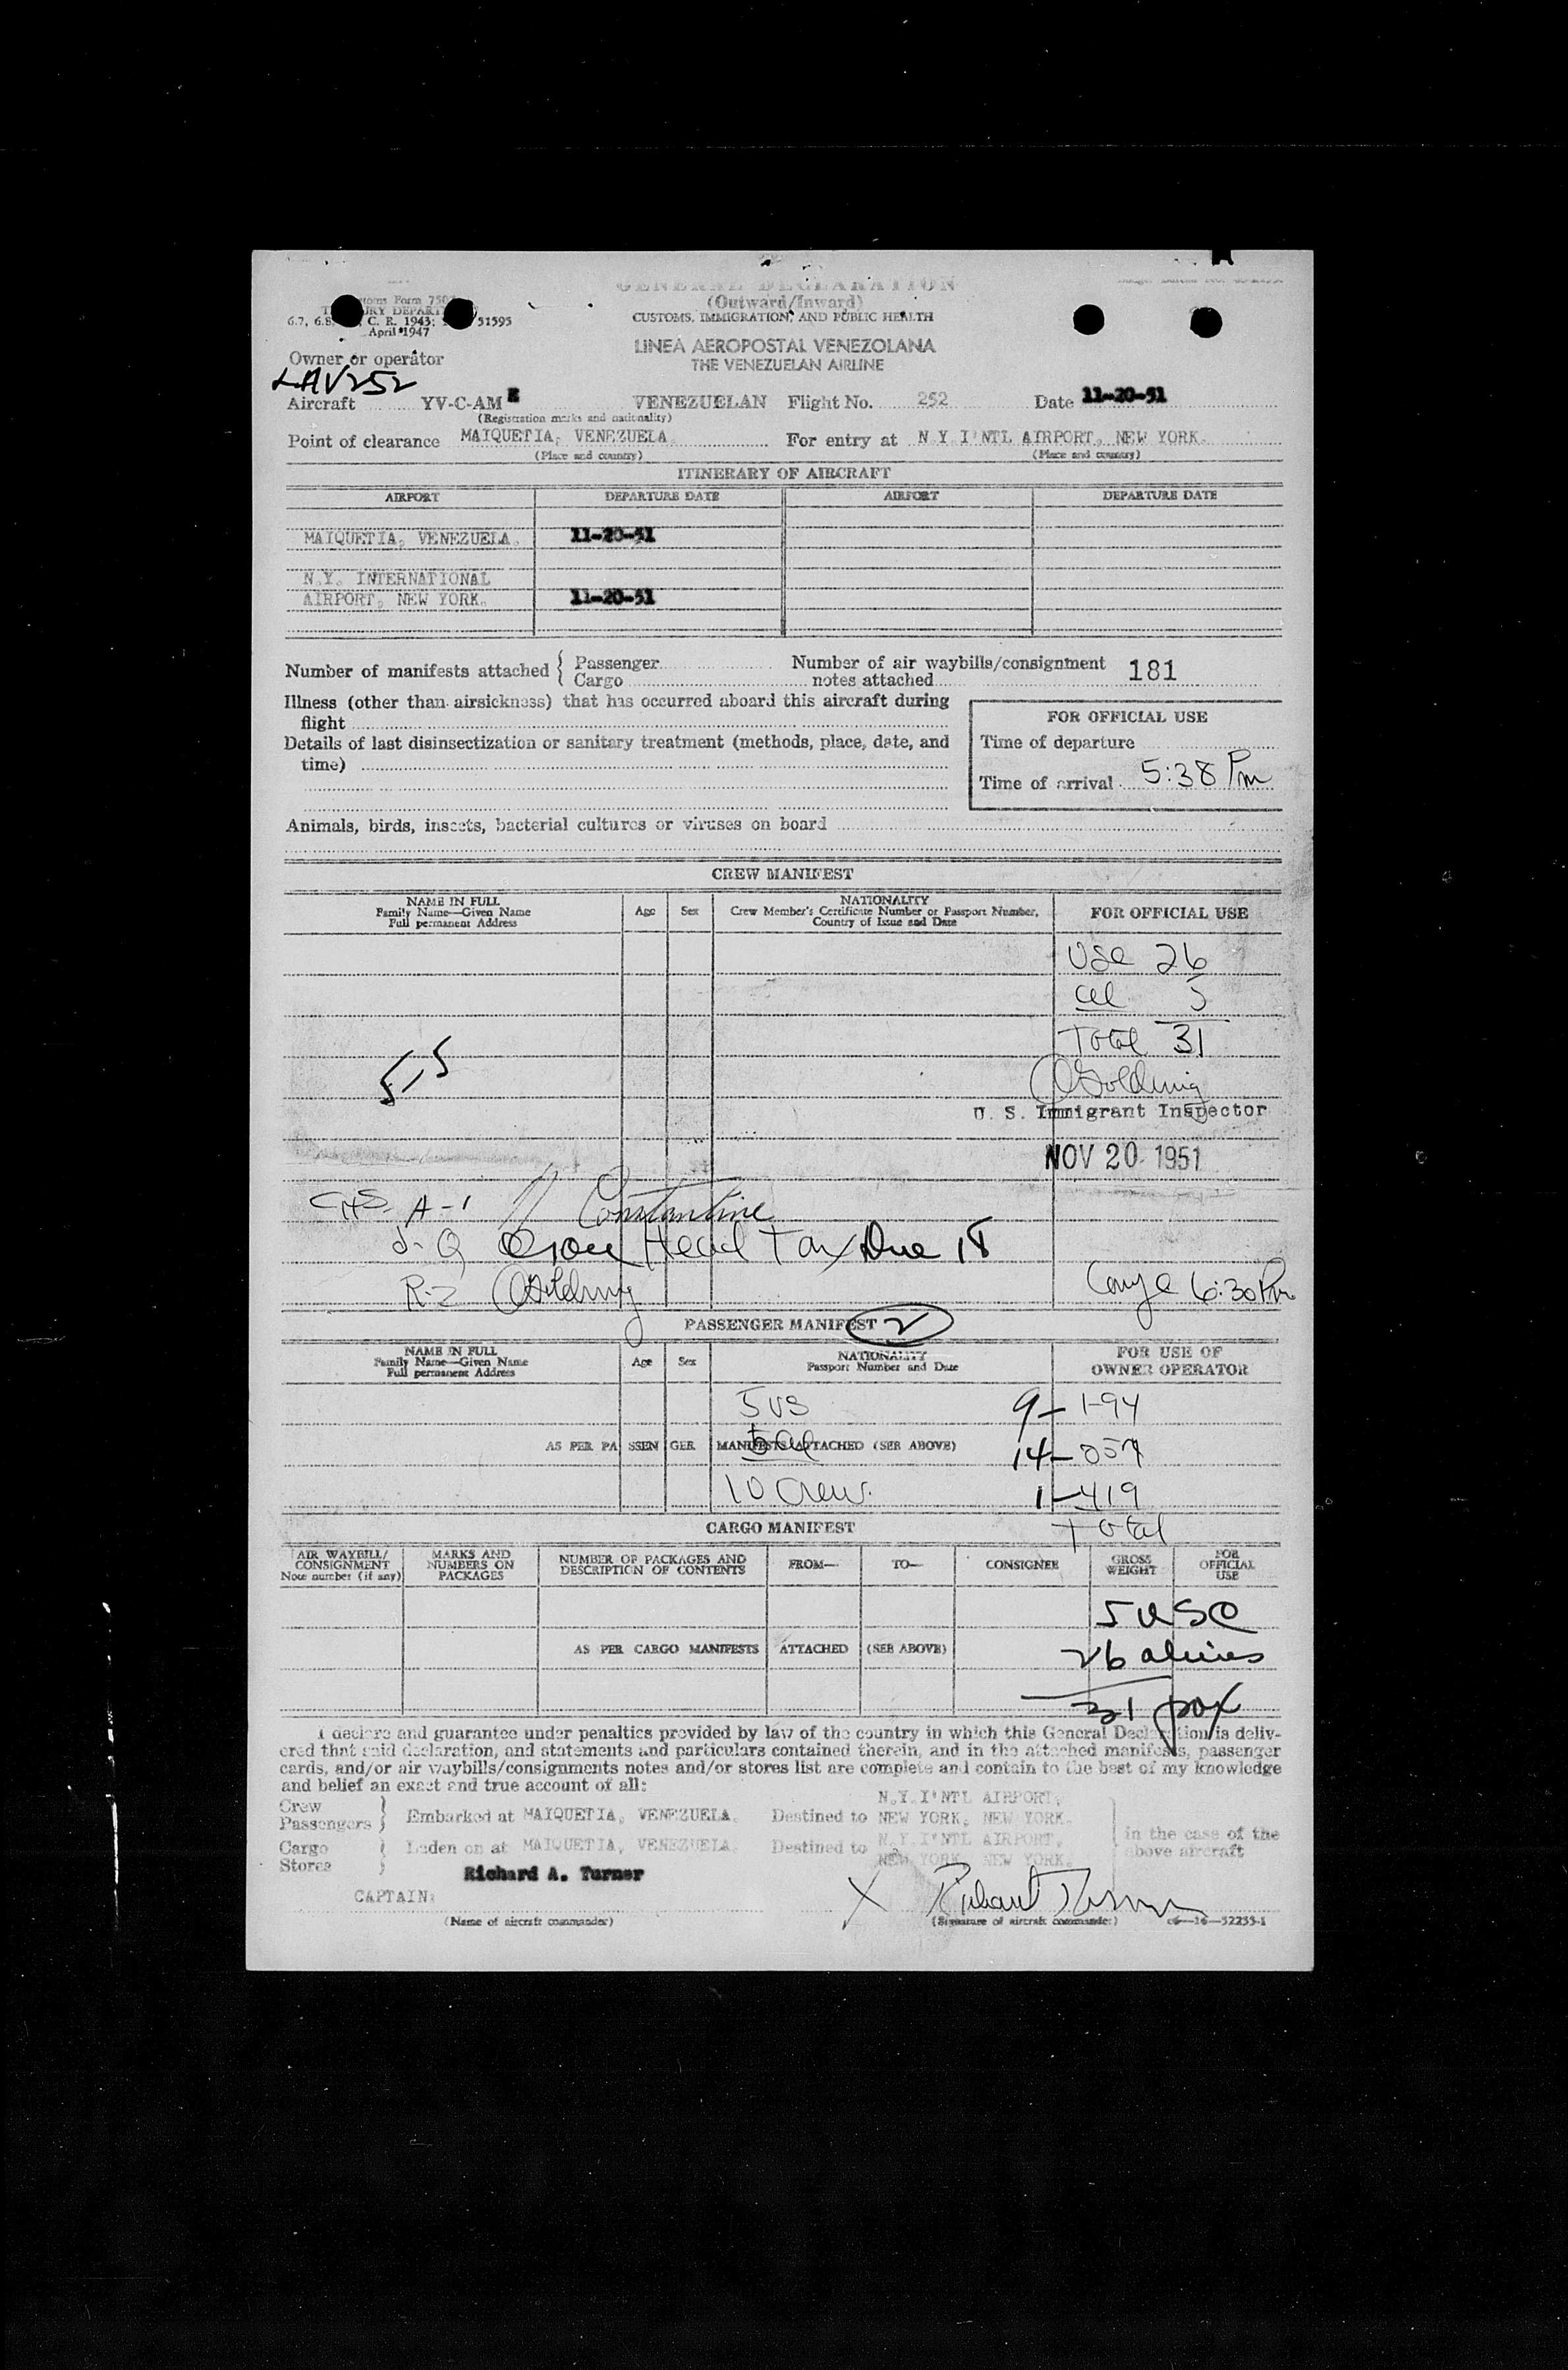 GENERAL DECLARATION
(Outward/Inward)
CUSTOMS, IMMIGRATION, AND PUBLIC HEALTH
Form 750
6.7, 6.8, C. R. 1943; 51595
April 1947
LINEA AEROPOSTAL VENEZOLANA
THE VENEZUELAN AIRLINE
Owner or operator
LAV252
Aircraft YV-C-AME VENEZUELAN Flight No. 252 Date 11-20-51
(Registration marks and nationality)
Point of clearance MAIQUETIA, VENEZUELA. For entry at N.Y.I'NTL AIRPORT, NEW YORK.
(Place and country) (Place and country)
ITINERARY OF AIRCRAFT
AIRPORT DEPARTURE DATE AIRPORT DEPARTURE DATE
MAIQUETIA, VENEZUELA. 11-20-51
N.Y. INTERNATIONAL
AIRPORT, NEW YORK. 11-20-51
Number of manifests attached { Passenger Number of air waybills/consignment 181
Cargo notes attached
Illness (other than airsickness) that has occurred aboard this aircraft during
flight
FOR OFFICIAL USE
Details of last disinsectization or sanitary treatment (methods, place, date, and
time)
Time of departure
Time of arrival 5:38 Pm
Animals, birds, insects, bacterial cultures or viruses on board
CREW MANIFEST
NAME IN FULL
Family Name—Given Name
Full permanent Address
Age Sex
NATIONALITY
Crew Member's Certificate Number or Passport Number,
Country of Issue and Date
FOR OFFICIAL USE
26
5
Total 31
5-5
Golding
U. S. Immigrant Inspector
NOV 20 1951
A-1 Constantine
Head Tax Due 18
R-2 Golding
6:30 Pm
PASSENGER MANIFEST 2
NAME IN FULL
Family Name—Given Name
Full permanent Address
Age Sex
NATIONALITY
Passport Number and Date
FOR USE OF
OWNER OPERATOR
5 US 9- 1-94
AS PER PASSENGER MANIFESTS ATTACHED (SEE ABOVE) 14- 257
10 Crew. 1-419
Total
CARGO MANIFEST
AIR WAYBILL/
CONSIGNMENT
Note number (if any)
MARKS AND
NUMBERS ON
PACKAGES
NUMBER OF PACKAGES AND
DESCRIPTION OF CONTENTS
FROM— TO— CONSIGNEE
GROSS
WEIGHT
FOR
OFFICIAL
USE
5 USC
AS PER CARGO MANIFESTS ATTACHED (SEE ABOVE) 26 aliens
31 pax
I declare and guarantee under penalties provided by law of the country in which this General Declaration is deliv-
ered that said declaration, and statements and particulars contained therein, and in the attached manifests, passenger
cards, and/or air waybills/consignments notes and/or stores list are complete and contain to the best of my knowledge
and belief an exact and true account of all:
Crew
Passengers } Embarked at MAIQUETIA, VENEZUELA. Destined to N.Y.I'NTL AIRPORT, NEW YORK, NEW YORK.
Cargo
Stores } Laden on at MAIQUETIA, VENEZUELA. Destined to N.Y.I'NTL AIRPORT, NEW YORK, NEW YORK.
in the case of the
above aircraft
Richard A. Turner
CAPTAIN: X Richard Turner
(Name of aircraft commander) (Signature of aircraft commander) c6—16—52255-1